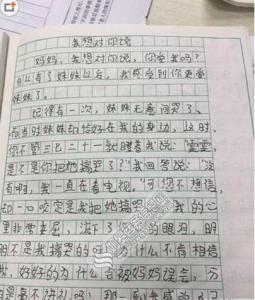 我想对你说
妈妈，我想对你说，你爱我吗？
自从有了妹妹以后，我感受到你更爱
妹妹了。
记得有一次，妹妹无意间哭了，
而当时妹妹的恰好在我的身边，这时，
你不管三七二十一就瞪着我说："雪霏，
是不是你把她搞哭了？"我回答说："没
有啊，我一直在看电视。"可您不想信，
却一口咬定是我把她搞哭 我的心
里非常委屈，流下了 的眼泪，明
明不是我搞哭的 为什么不肯相信
我，好好的为什么会被妈妈误会，
是毫不讲礼吗？那一刻我感